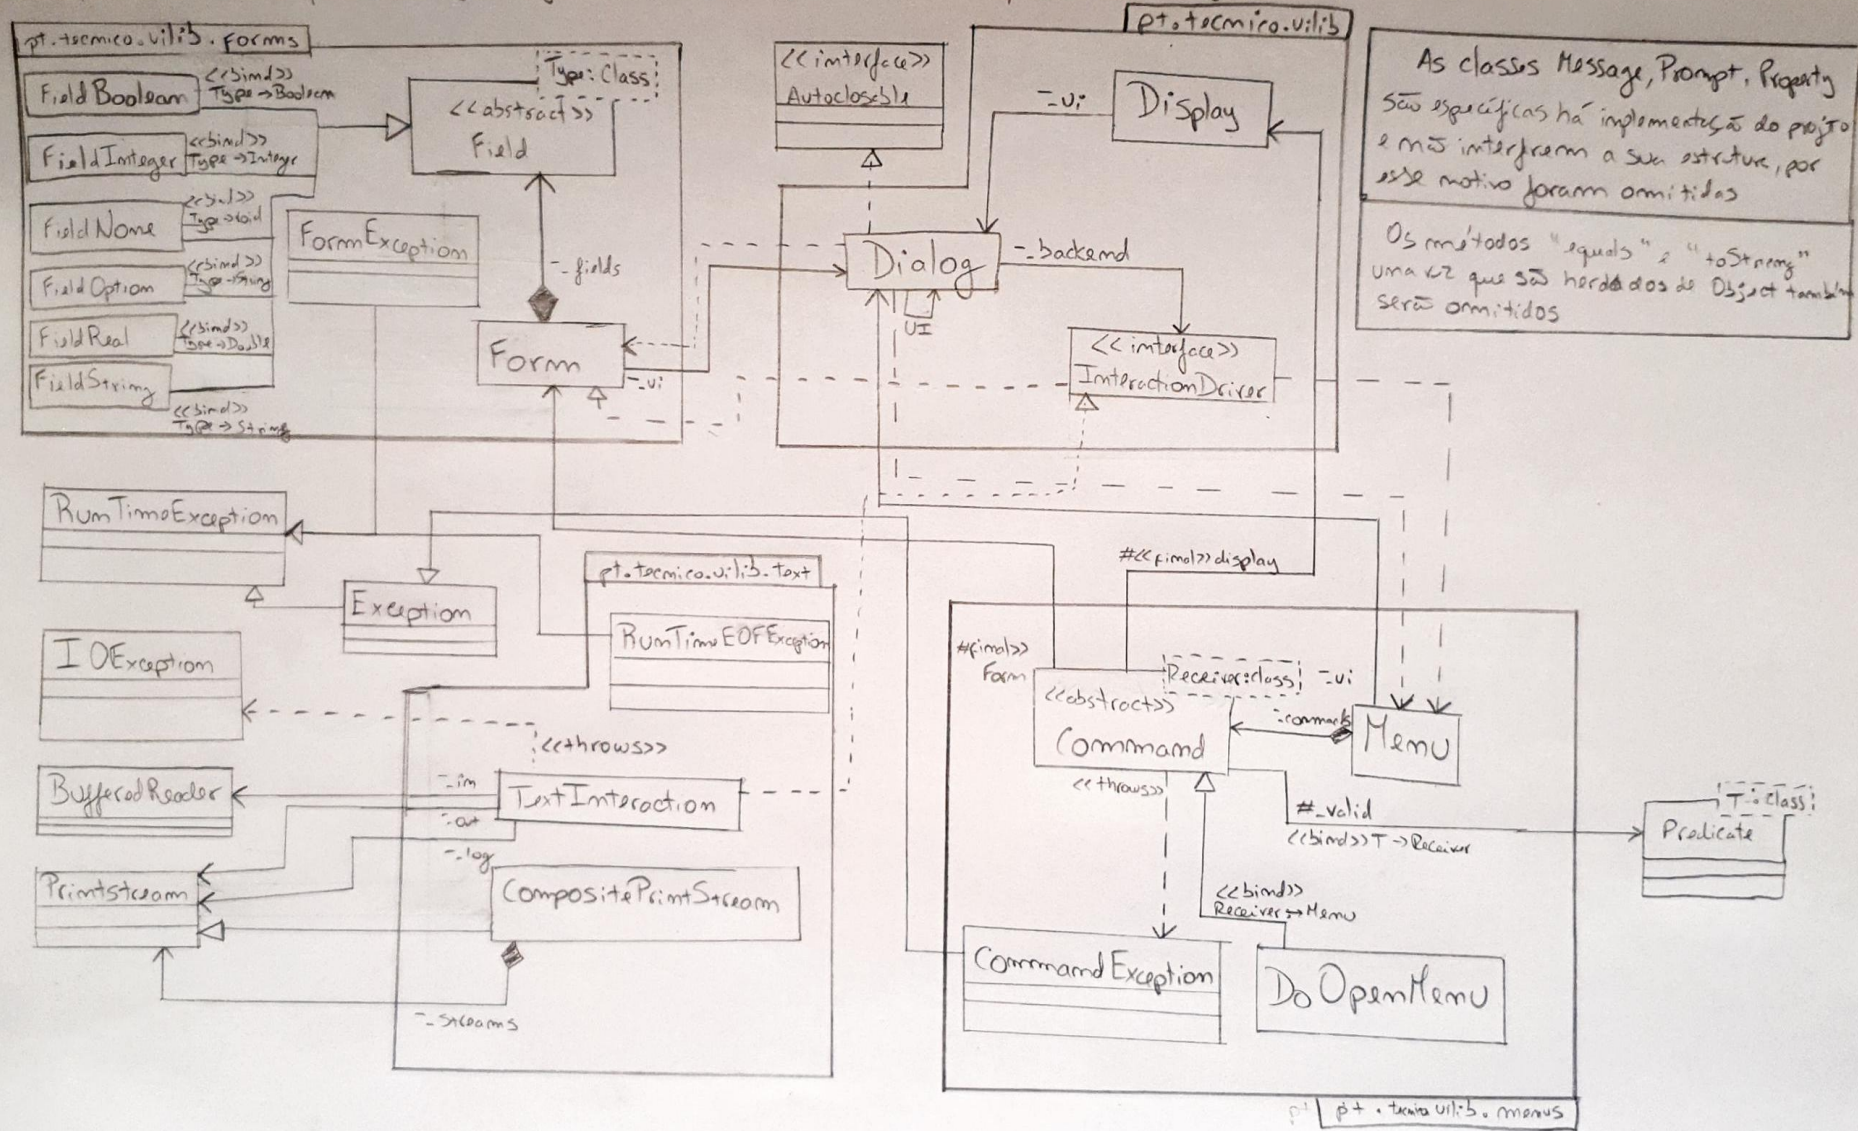 pt.tecnico.uilib.forms
FieldBoolean
<<bind>>
Type→Boolean
FieldInteger
<<bind>>
Type→Integer
FieldNone
<<bind>>
Type→Void
FieldOption
<<bind>>
Type→String
FieldReal
<<bind>>
Type→Double
FieldString
<<bind>>
Type→String
Type:Class
<<abstract>>
Field
FormException
-_fields
Form
-_ui
pt.tecnico.uilib
<<interface>>
Autoclosable
Display
-_ui
Dialog
-_backend
UI
<<interface>>
InteractionDriver
As classes Message, Prompt, Property
são específicas há implementação do projto
e não interfrem a sua estruture, por
esse motivo foram ommitidas
Os métodos "equals" e "toString"
uma vez que são herdados de Object também
serão ommitidos
RunTimeException
Exception
IOException
BufferedReader
Printstream
pt.tecnico.uilib.text
RunTimeEOFException
<<throws>>
-_in
-_out
-_log
TextInteraction
CompositePrintStream
-_streams
#<<final>>display
#final>>
Form
Receiver:class
-_ui
<<abstract>>
Command
Menu
<<throws>>
#_valid
<<bind>> T→Receiver
T:Class
Predicate
<<bind>>
Receiver→Menu
CommandException
DoOpenMenu
pt.tecnico.uilib.menus